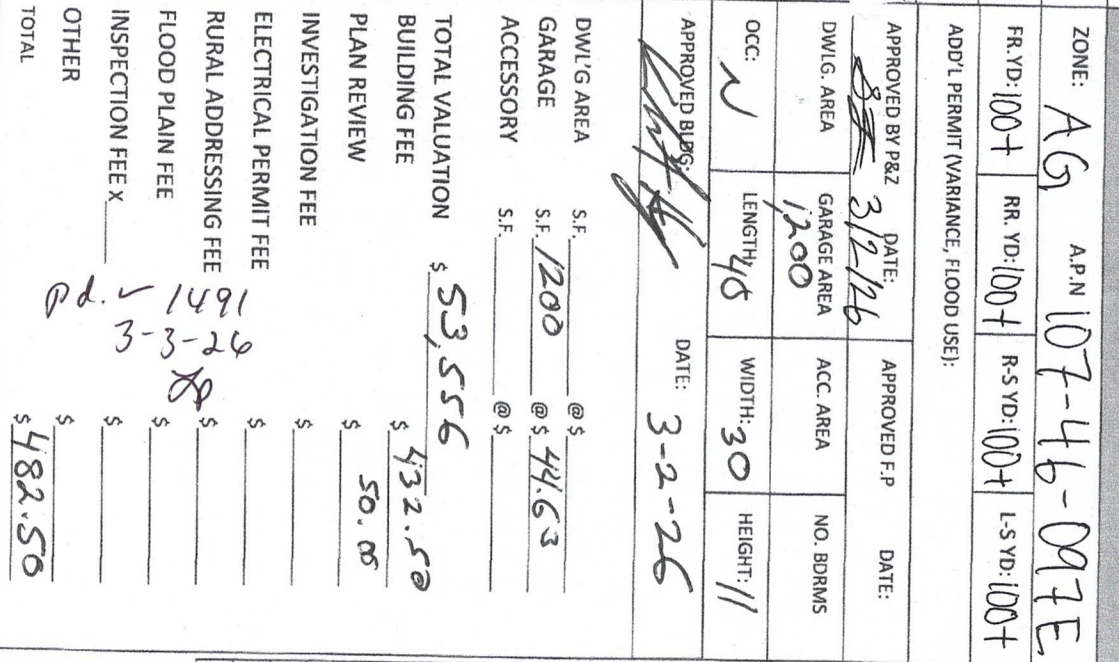 ZONE: AG A.P.N 107-46-097E
FR. YD: 100+ RR. YD: 100+ R-S YD: 100+ L-S YD: 100+
ADD'L PERMIT (VARIANCE, FLOOD USE):
APPROVED BY P&Z DATE: 3/2/26 APPROVED F.P DATE:
DWLG. AREA GARAGE AREA 1,200 ACC. AREA NO. BDRMS
OCC: N LENGTH: 40 WIDTH: 30 HEIGHT: 11
APPROVED BLDG: DATE: 3-2-26
DWL'G AREA S.F. @ $
GARAGE S.F. 1200 @ $ 44.63
ACCESSORY S.F. @ $
TOTAL VALUATION $ 53,556
BUILDING FEE $ 432.50
PLAN REVIEW $ 50.00
INVESTIGATION FEE $
ELECTRICAL PERMIT FEE $
RURAL ADDRESSING FEE $
FLOOD PLAIN FEE $
INSPECTION FEE x $
OTHER $
TOTAL $ 482.50
pd. ✓ 1491
3-3-26